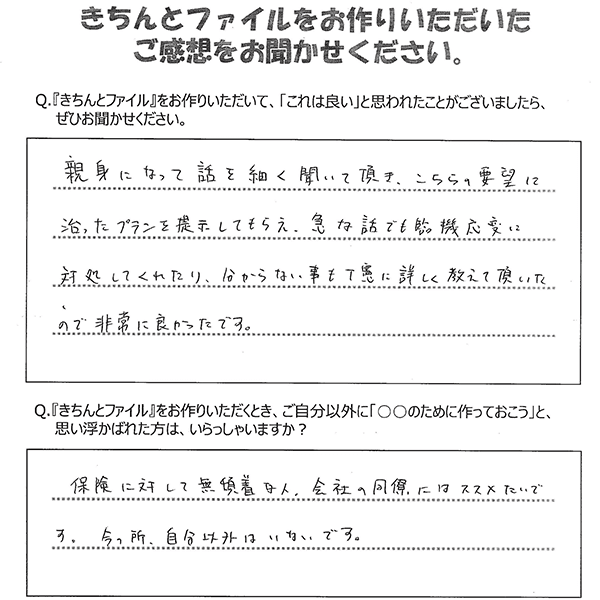 きちんとファイルをお作りいただいた
ご感想をお聞かせください。
Q.『きちんとファイル』をお作りいただいて、「これは良い」と思われたことがございましたら、
ぜひお聞かせください。
親身になって話を細く聞いて頂き、こちらの要望に
沿ったプランを提示してもらえ、急な話でも臨機応変に
対処してくれたり、分からない事も丁寧に詳しく教えて頂いた
ので非常に良かったです。
Q.『きちんとファイル』をお作りいただくとき、ご自分以外に「○○のために作っておこう」と、
思い浮かばれた方は、いらっしゃいますか?
保険に対して無頓着な人、会社の同僚にはススメたいで
す。今の所、自分以外はいないです。